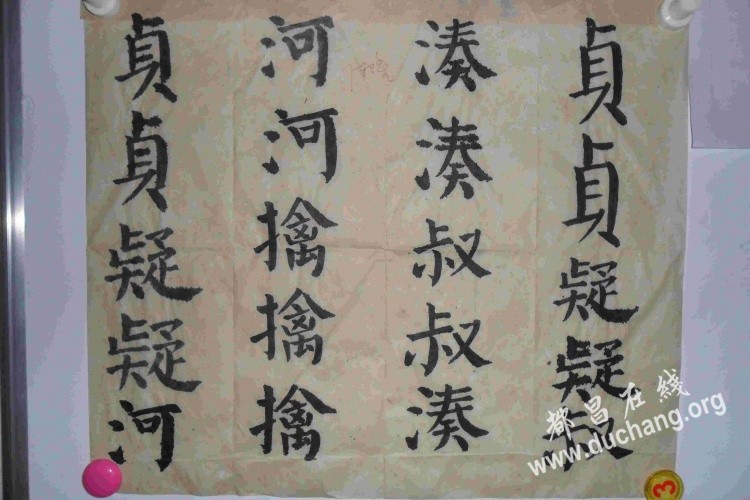 貞貞疑疑叔
湊湊叔叔湊
河河擒擒擒
貞貞疑疑河
都昌在线
www.duchang.org
3